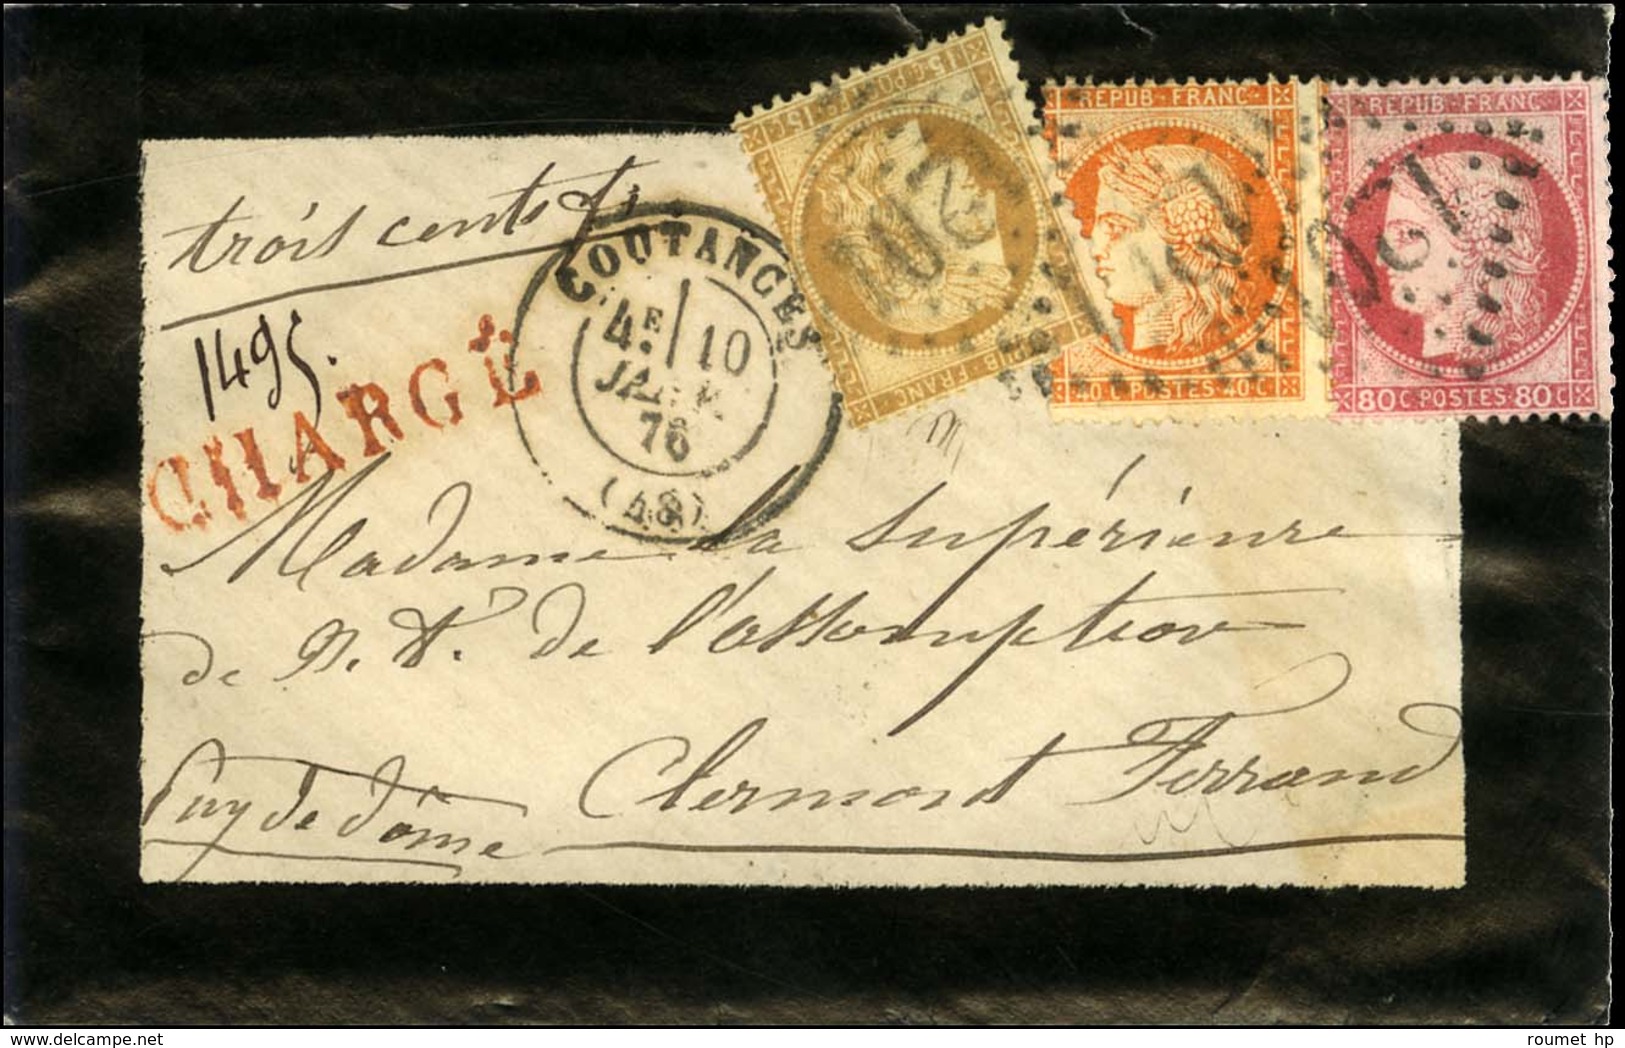 trois cents f.
1495.
CHARGÉ
COUTANCES
4E / 10
JANV.
76
(48)
15 C. POSTES 15 C.
REPUB. FRANC.
REPUB. FRANC.
40 C. POSTES 40 C
REPUB. FRANC.
80 C. POSTES 80 C
Madame la Supérieure
de N. D. de l'assomption
Clermont Ferrand
Puy de dôme
roumet hp